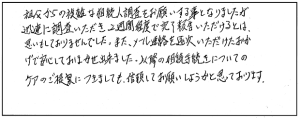 祖父からの複雑な相続人調査をお願いする事となりましたが
迅速に調査いただき、2週間程度で完了報告いただけるとは、
思いもしておりませんでした。また、メール連絡を逐次いただけたおかげ
で安心しておまかせ出来ました。以降の相続手続きについての
ケアのご提案につきましても、信頼してお願いしようかと思っております。